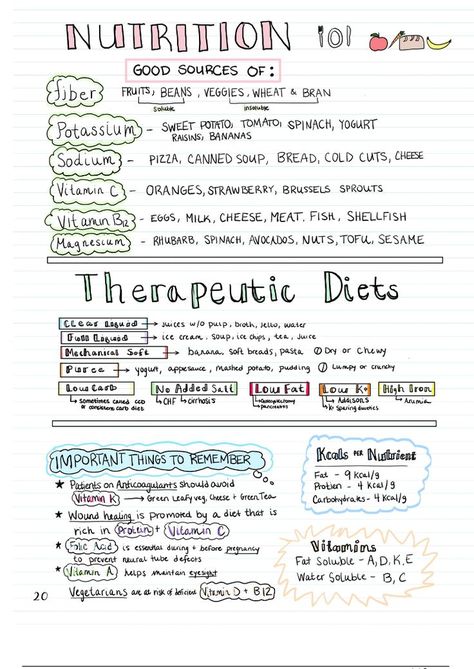 NUTRITION 101
GOOD SOURCES OF:
fiber FRUITS, BEANS, VEGGIES, WHEAT & BRAN
Soluble insoluble
Potassium - SWEET POTATO, TOMATO, SPINACH, YOGURT
RAISINS, BANANAS
Sodium - PIZZA, CANNED SOUP, BREAD, COLD CUTS, CHEESE
Vitamin C - ORANGES, STRAWBERRY, BRUSSELS SPROUTS
Vitamin B12 - EGGS, MILK, CHEESE, MEAT, FISH, SHELLFISH
Magnesium - RHUBARB, SPINACH, AVOCADOS, NUTS, TOFU, SESAME
Therapeutic Diets
Clear Liquid → Juices w/o pulp, broth, Jello, water
Full Liquid → ice cream, soup, ice chips, tea, juice
Mechanical Soft → banana, soft breads, pasta Dry or Chewy
Puree → yogurt, applesauce, mashed potato, pudding Lumpy or crunchy
Low Carb No Added Salt Low Fat Low K+ High Iron
↳ sometimes called CCD ↳ CHF ↳ cirrhosis ↳ Addisons ↳ Anemia
or consistent carb diet Pancreatitis K+ Sparing diuretics
IMPORTANT THINGS TO REMEMBER
★ Patients on Anticoagulants should avoid
Vitamin K → Green Leafy veg, Cheese + Green Tea
★ Wound healing is promoted by a diet that is
rich in Protein + Vitamin C
★ Folic Acid is essential during + before pregnancy
to prevent neural tube defects
★ Vitamin A helps maintain eyesight
Vegetarians are at risk of deficient Vitamin D + B12
Kcals per Nutrient
Fat - 9 Kcal/g
Protien - 4 Kcal/g
Carbohydrates - 4 Kcal/g
Vitamins
Fat Soluble - A, D, K, E
Water Soluble - B, C
20